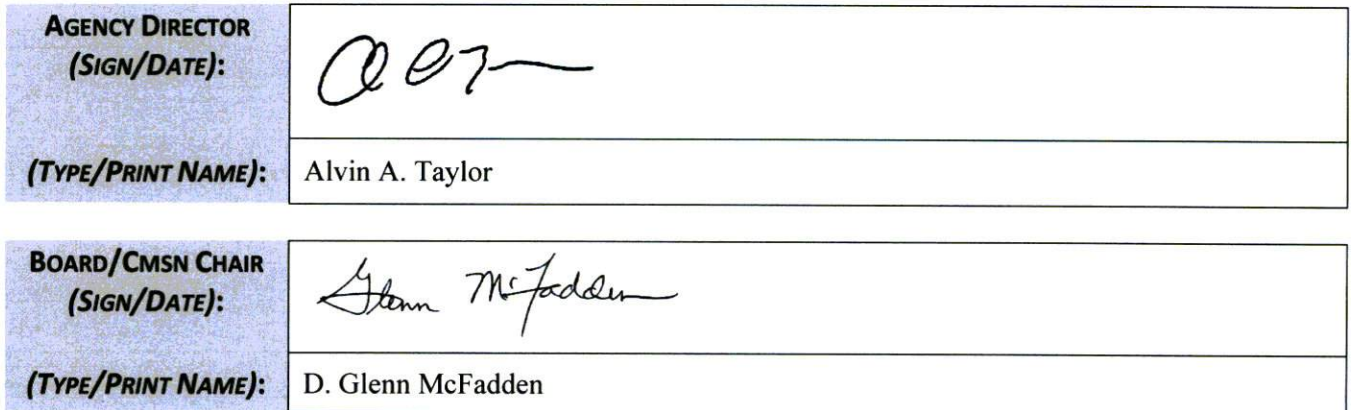 AGENCY DIRECTOR
(SIGN/DATE):
(TYPE/PRINT NAME): Alvin A. Taylor
BOARD/CMSN CHAIR
(SIGN/DATE): Glenn McFadden
(TYPE/PRINT NAME): D. Glenn McFadden